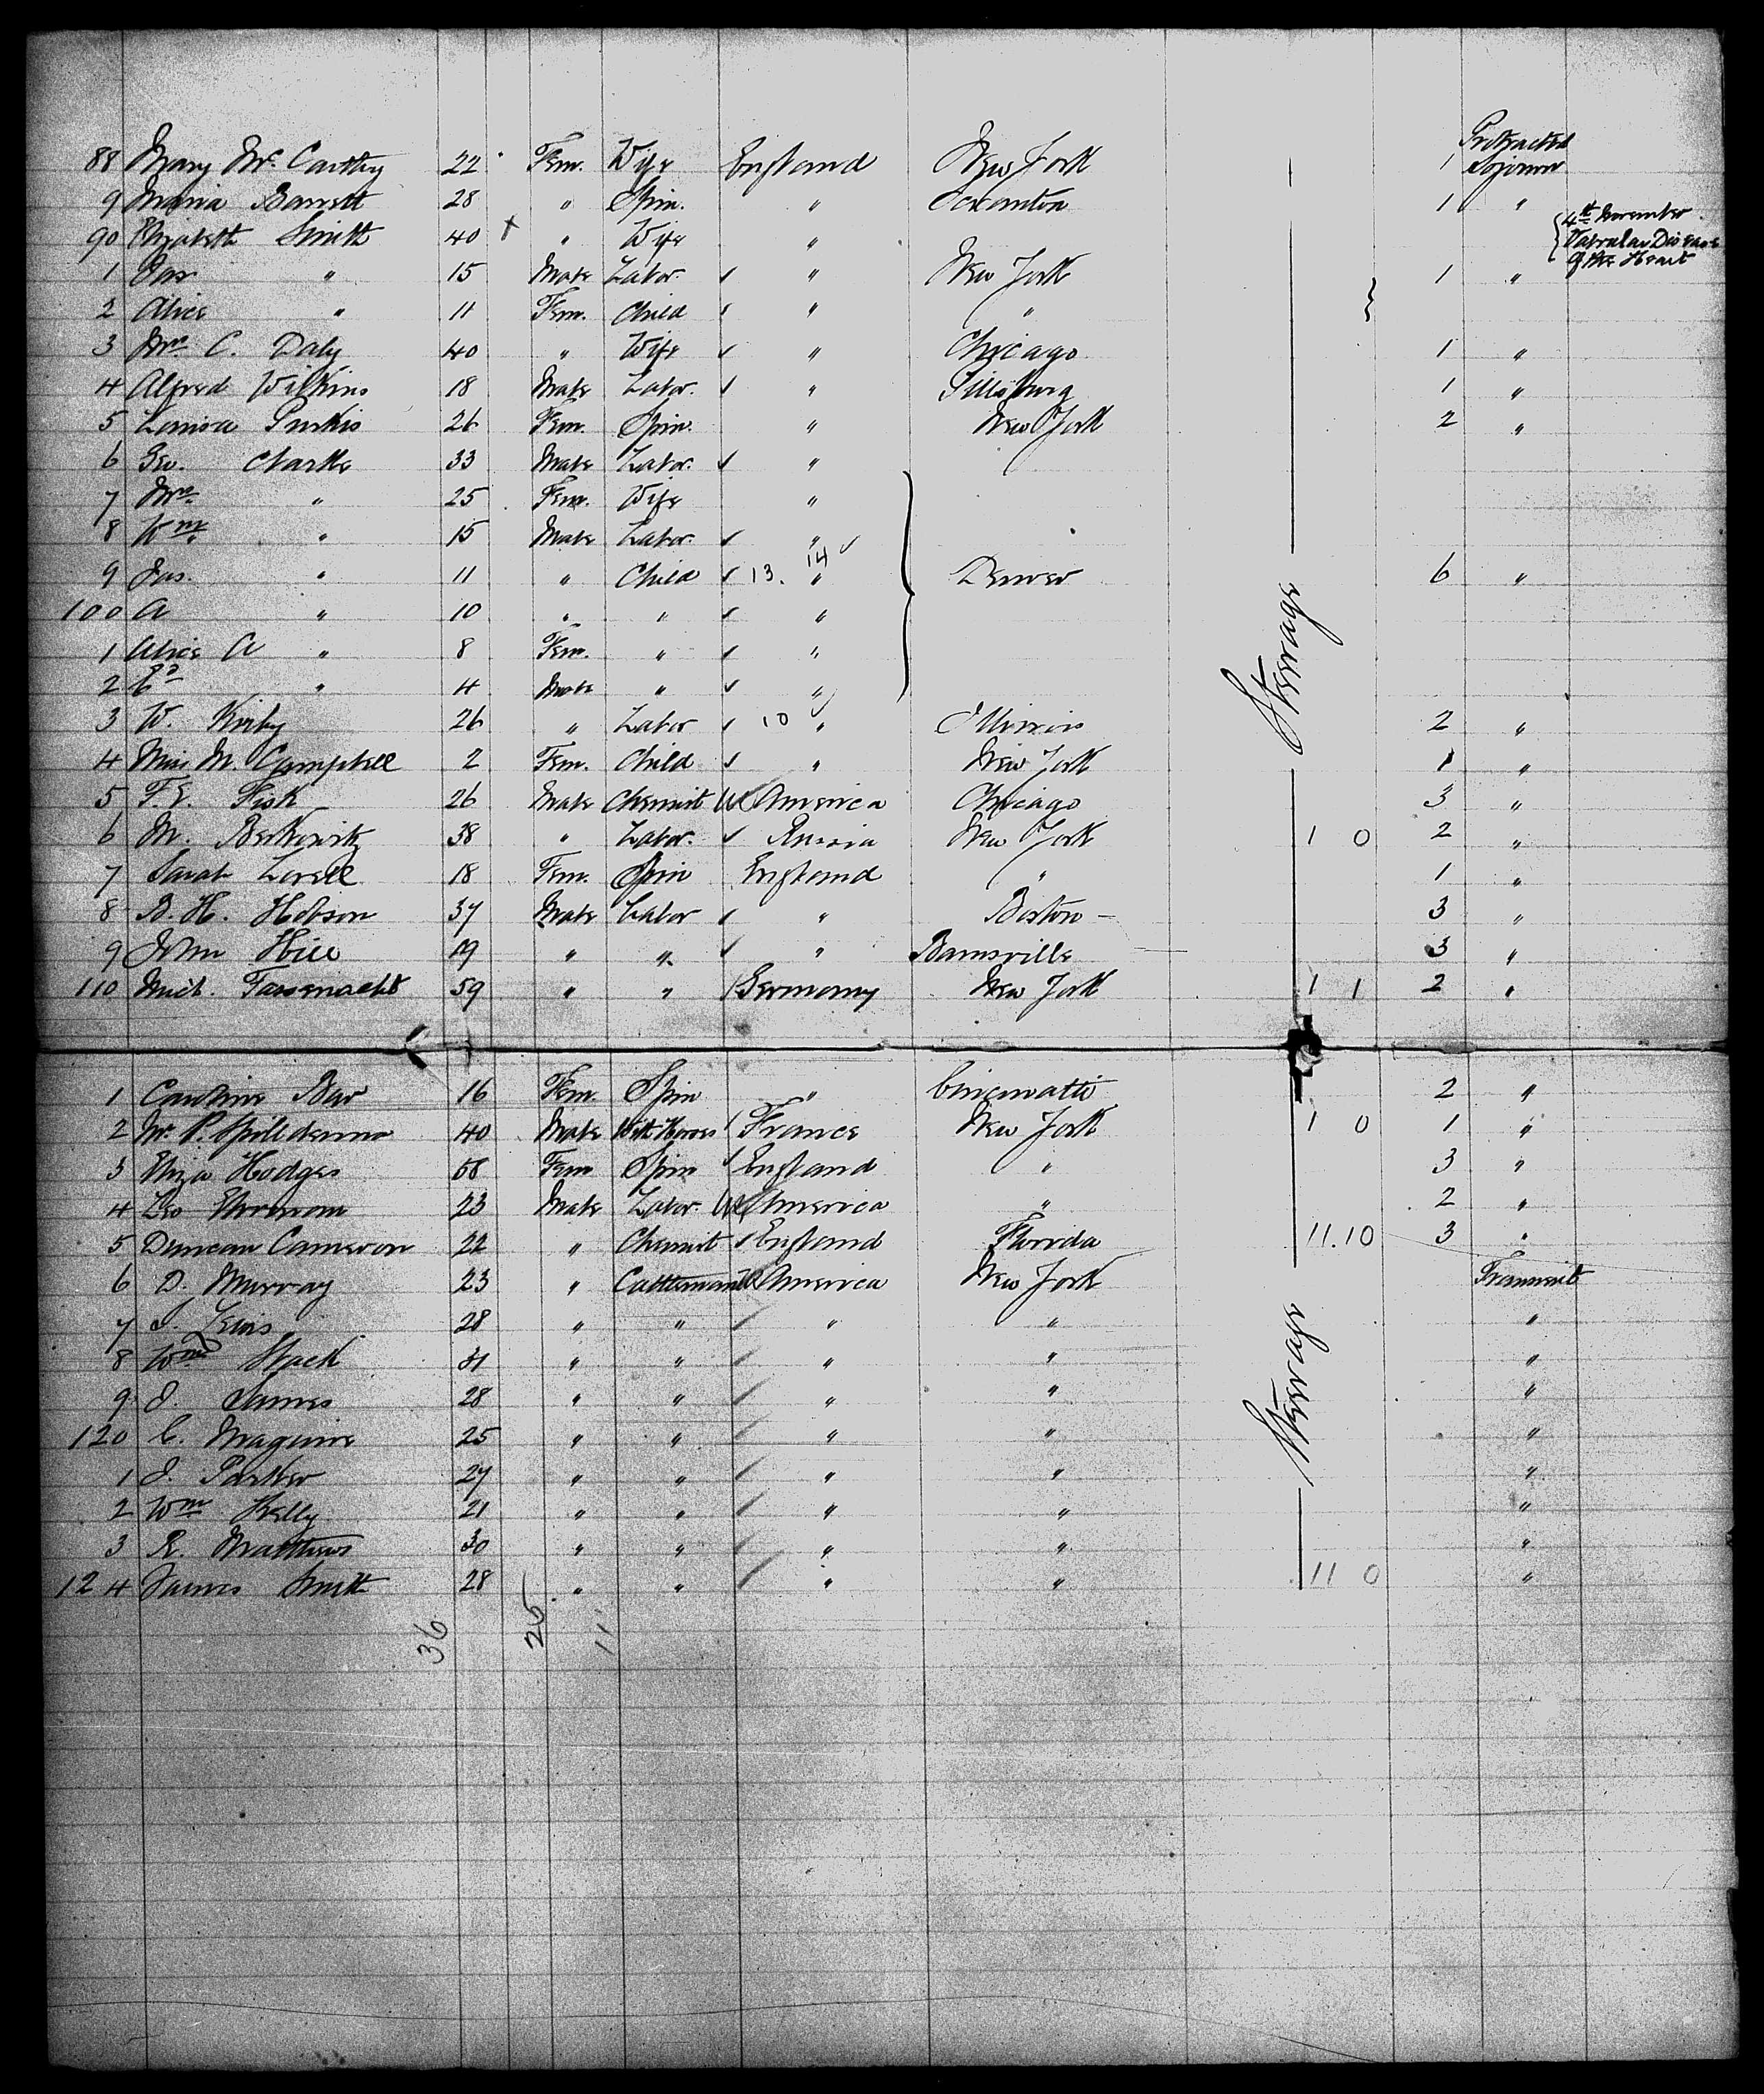 88 Mary Mc Carthy 22 Fem. Wife England New York 1 Protracted Sojourn
9 Maria Barrett 28 " Spin. " Scranton 1 "
90 Elizabeth Smith 40 + " Wife " { 4th November Valvular Disease of the Heart
1 Jas " 15 Male Labor. " New York 1 "
2 Alice " 11 Fem. Child " "
3 Mrs C. Daly 40 " Wife " Chicago 1 "
4 Alfred Wilkins 18 Male Labor. " Pittsburg 1 "
5 Louisa Purkis 26 Fem. Spin. " New York 2 "
6 Geo. Clarke 33 Male Labor. "
7 Mrs " 25 Fem. Wife "
8 Wm " 15 Male Labor. "
9 Jas. " 11 " Child 13. 14 " Denver 6 "
100 A " 10 " " "
1 Alice A " 8 Fem. " "
2 Ed " 4 Male " "
3 W. Kirby 26 " Labor 10 " Illinois 2 "
4 Miss M. Campbell 2 Fem. Child " New York 1 "
5 F.E. Fisk 26 Male Chemist America Chicago 3 "
6 M. Berkowitz 38 " Labor. Russia New York 1 0 2 "
7 Sarah Lovell 18 Fem. Spin England " 1 "
8 B. H. Hobson 37 Male Labor " Boston 3 "
9 John Hill 19 " " " Barnsville 3 "
110 Mich. Fassenacht 59 " " Germany New York 1 1 2 "
Steerage
1 Caroline Bar 16 Fem. Spin " Cincinnatti 2 "
2 Mr P. 40 Male With Horses France New York 1 0 1 "
3 Eliza Hodges 58 Fem Spin England " 3 "
4 Leo 23 Male Labor. America " 2 "
5 Duncan Cameron 22 " Chemist England Florida 11.10 3 "
6 D. Murray 23 " Cattleman America New York Transient
7 J. Lewis 28 " " " " "
8 Wm Stack 31 " " " " "
9 J. James 28 " " " " "
120 C. Maguire 25 " " " " "
1 J. Parker 27 " " " " "
2 Wm Kelly 21 " " " " "
3 R. Matthews 30 " " " " "
124 James Smith 28 " " " " 11 0 "
Steerage
36 25 11